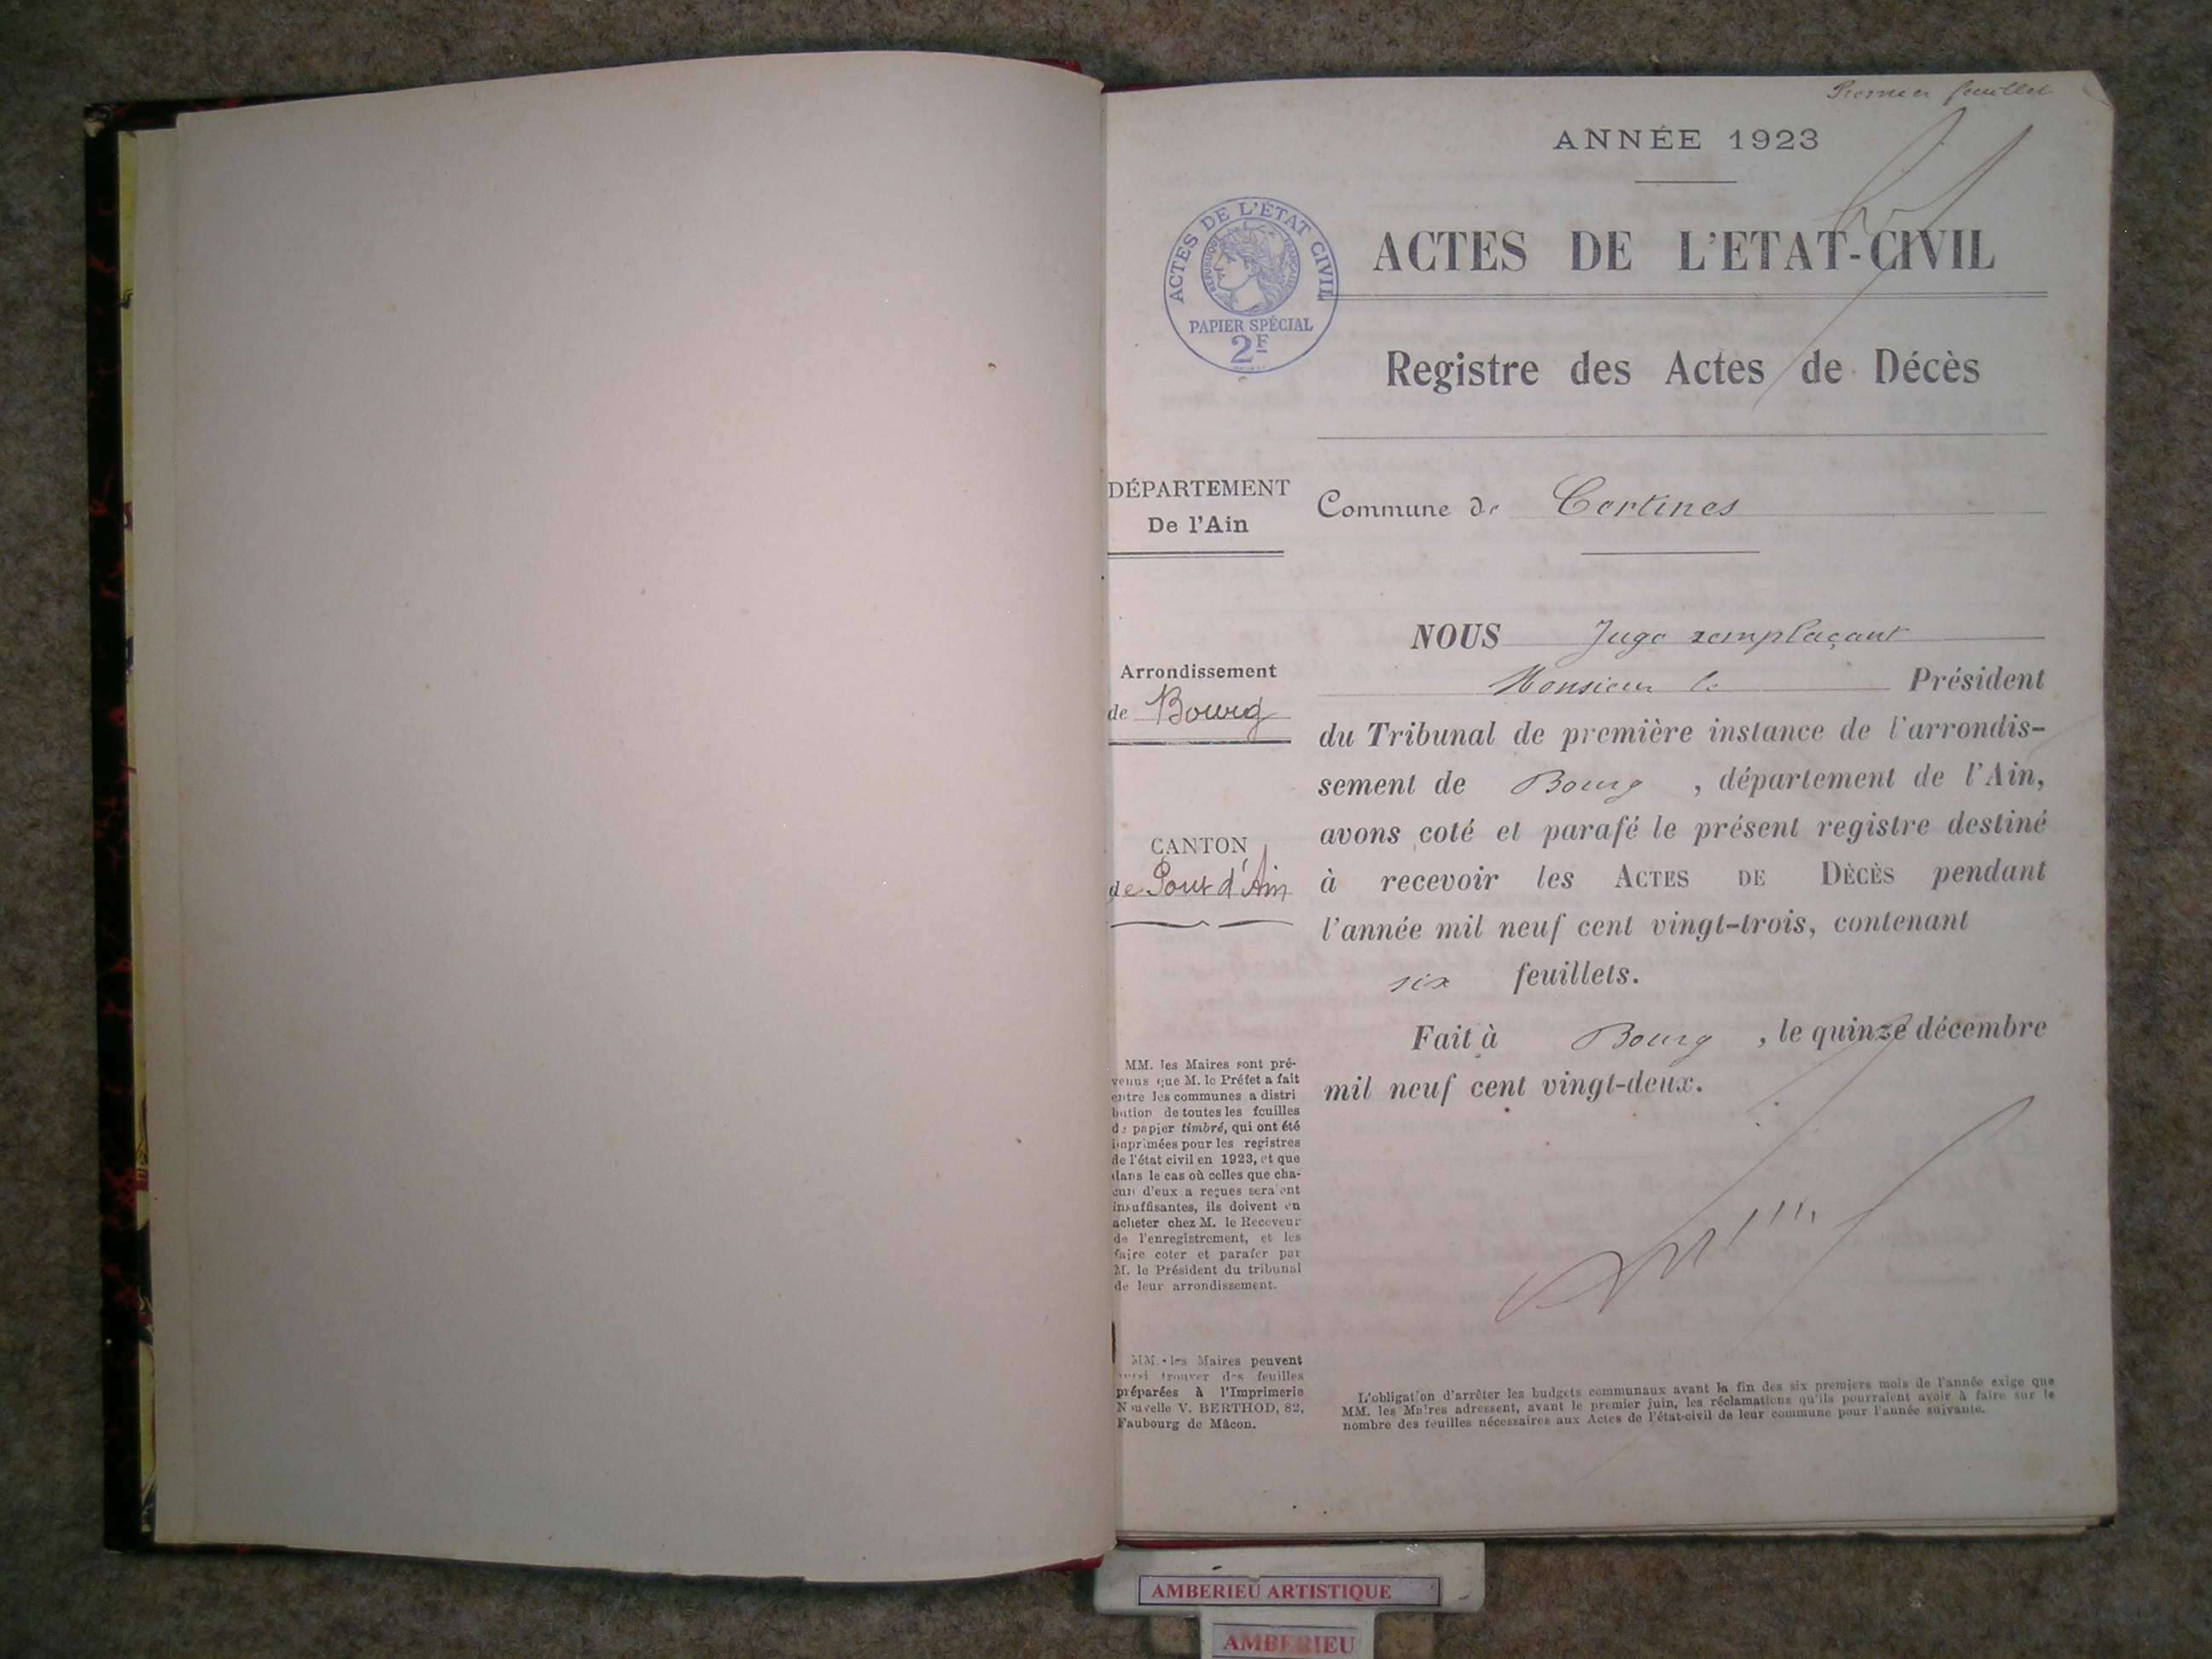 Premier feuillet
ANNÉE 1923
ACTES DE L'ÉTAT CIVIL
RÉPUBLIQUE FRANÇAISE
PAPIER SPÉCIAL
2F
ACTES DE L'ETAT-CIVIL
Registre des Actes de Décès
DÉPARTEMENT
De l'Ain
Commune de Certines
Arrondissement
de Bourg
CANTON
de Pont d'Ain
NOUS Juge remplaçant
Monsieur le Président
du Tribunal de première instance de l'arrondis-
sement de Bourg, département de l'Ain,
avons coté et parafé le présent registre destiné
à recevoir les ACTES DE DÉCÈS pendant
l'année mil neuf cent vingt-trois, contenant
six feuillets.
Fait à Bourg, le quinze décembre
mil neuf cent vingt-deux.
MM. les Maires sont pré-
venus que M. le Préfet a fait
entre les communes a distri
bution de toutes les feuilles
de papier timbré, qui ont été
imprimées pour les registres
de l'état civil en 1923, et que
dans le cas où celles que cha-
cun d'eux a reçues seraient
insuffisantes, ils doivent en
acheter chez M. le Receveur
de l'enregistrement, et les
faire coter et parafer par
M. le Président du tribunal
de leur arrondissement.
MM. les Maires peuvent
aussi trouver des feuilles
préparées à l'Imprimerie
Nouvelle V. BERTHOD, 82,
Faubourg de Mâcon.
L'obligation d'arrêter les budgets communaux avant la fin des six premiers mois de l'année exige que
MM. les Maires adressent, avant le premier juin, les réclamations qu'ils pourraient avoir à faire sur le
nombre des feuilles nécessaires aux Actes de l'état-civil de leur commune pour l'année suivante.
AMBERIEU ARTISTIQUE
AMBERIEU